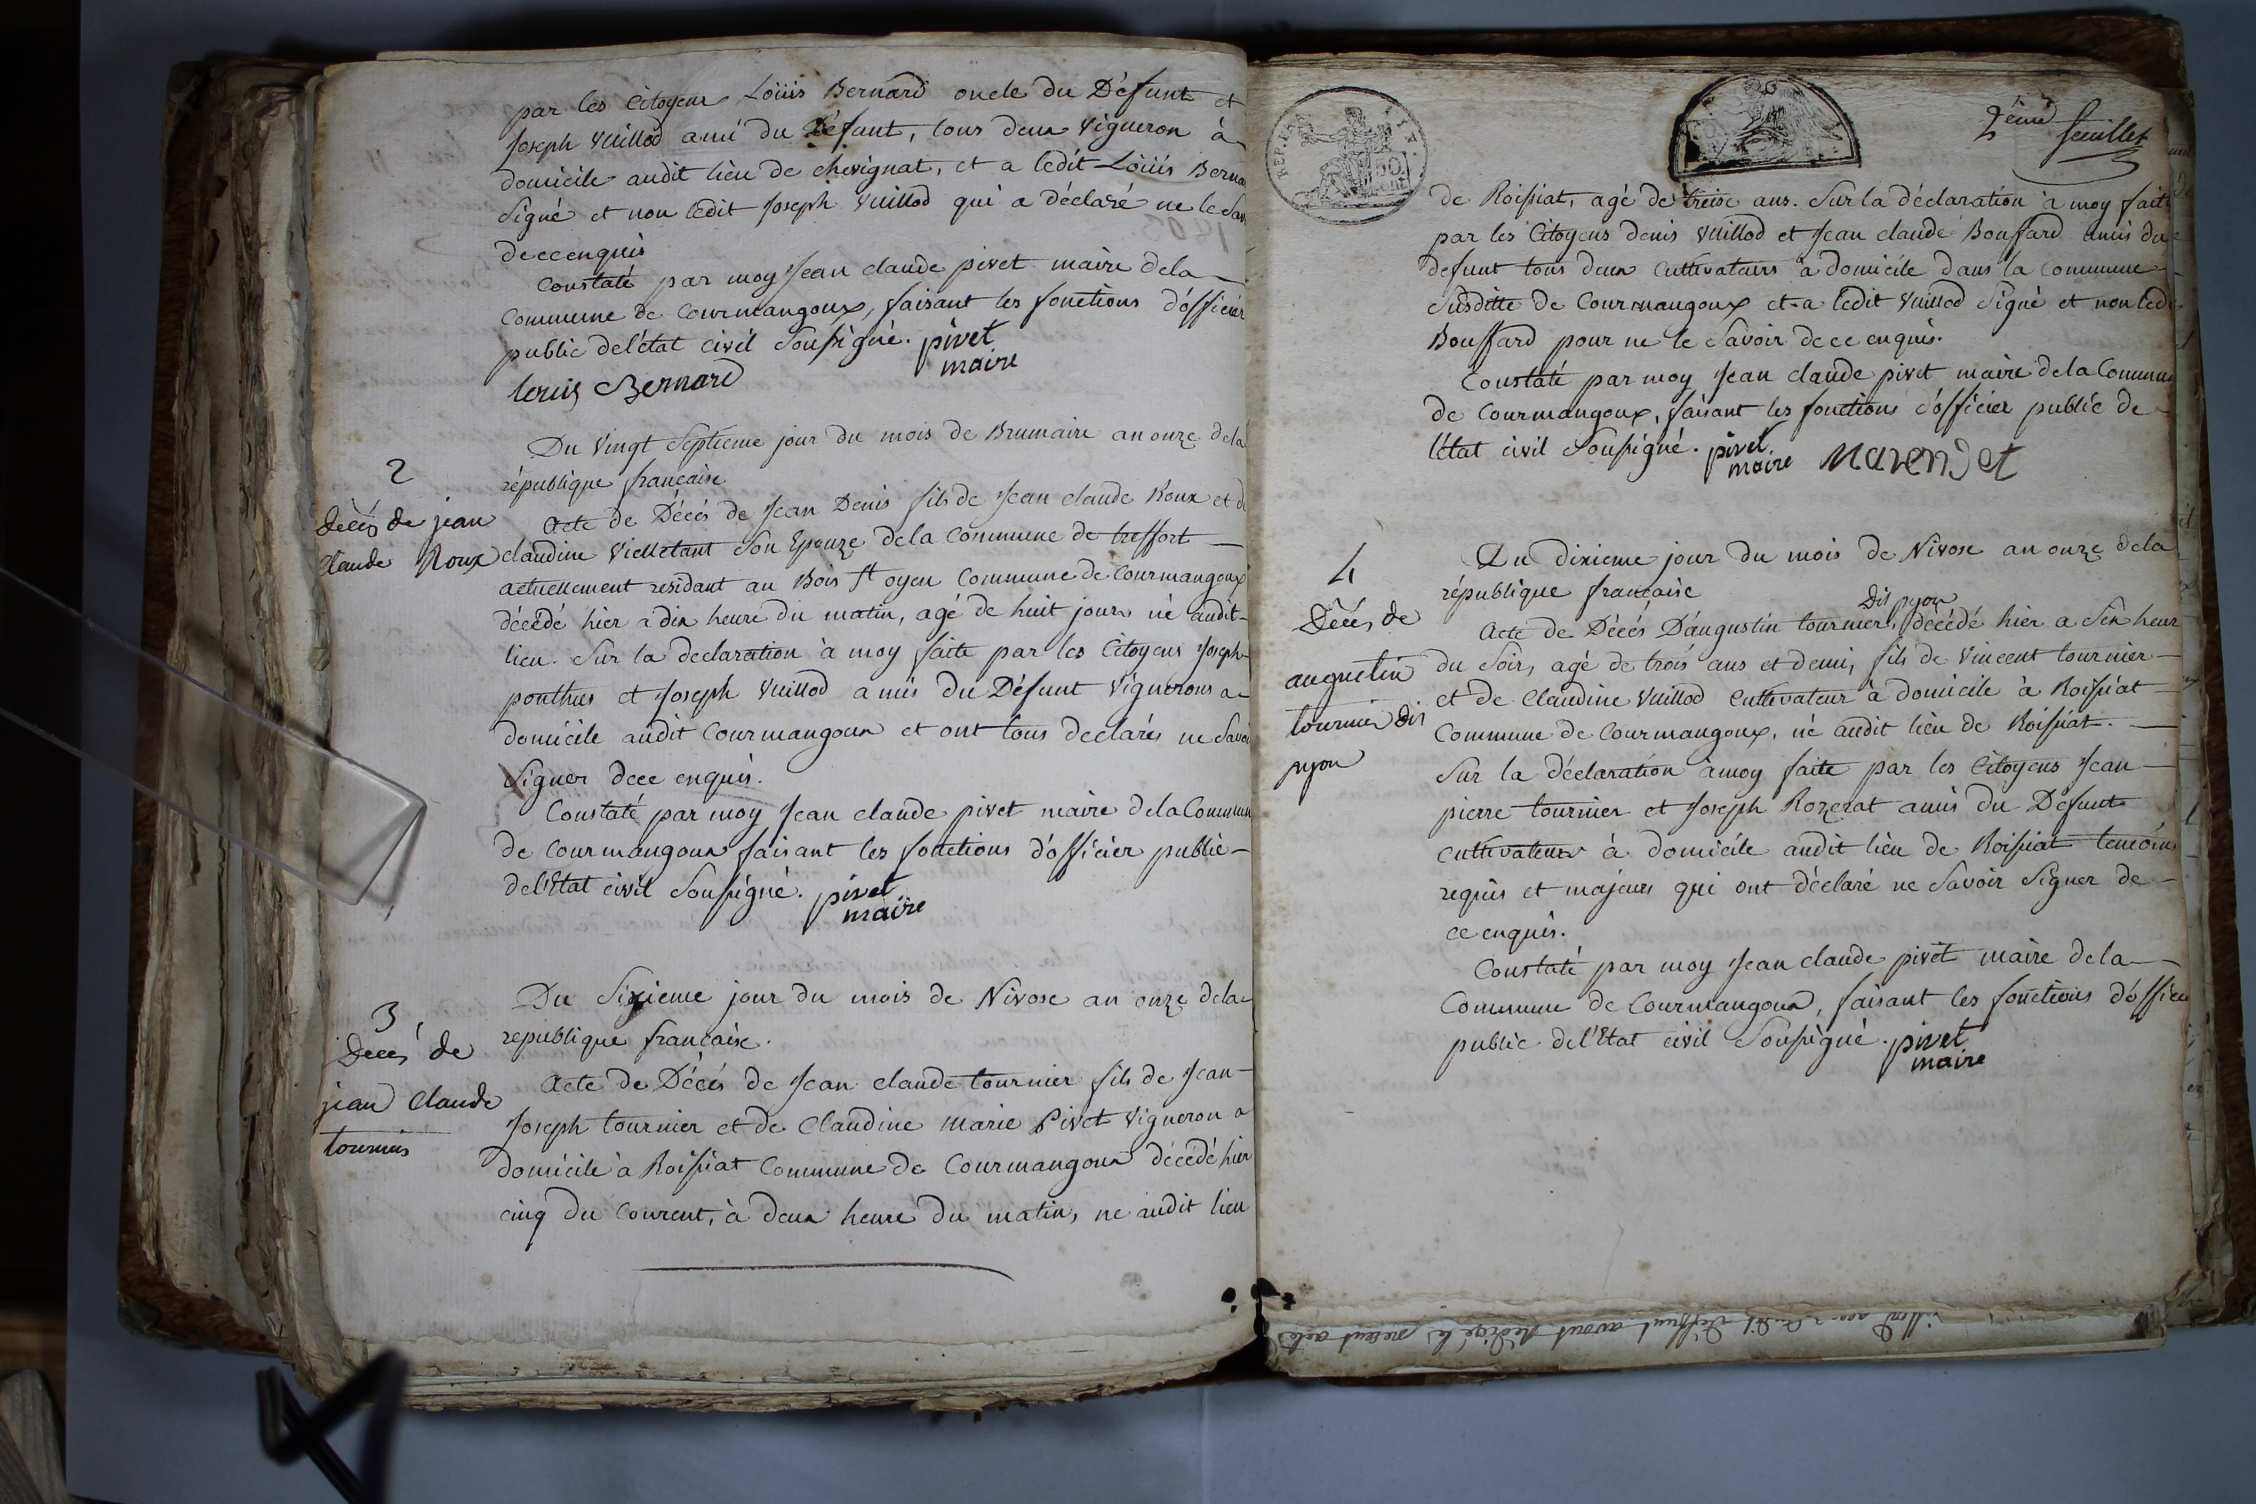 par les Citoyens Loüis Bernard oncle du Défunt et
Joseph Vuillod ami du Défunt, tous deux Vigneron à
domicile audit lieu de chevignat, et a ledit Loüis Berna
Signé et non ledit Joseph Vuillod qui a déclaré ne le Sav
de ce enquis
Constaté par moy Jean claude pivet maire dela
Commune de Courmangoux, faisant les fonctions d'officier
public del'état civil Soussigné. pivet
maire
louis Bernard
2
Décès de jean
Claude Roux
Du Vingt Septieme jour du mois de Brumaire an onze dela
république francaise
Acte de Décés de Jean Denis fils de Jean claude Roux et d
claudine Vielletant Son Epouze dela Commune de treffort
actuellement residant au Bois St oyen Commune de Courmangoux
décédé hier a dix heure du matin, agé de huit jours né audit
lieu. Sur la declaration à moy faite par les Citoyens Joseph
ponthus et Joseph Vuillod amis du Défunt Vignerons a
domicile audit Courmangoux et ont tous declarés ne Savoi
Signer dece enquis.
Constaté par moy Jean claude pivet maire dela Commun
de Courmangoux faisant les fonctions d'officier public
del'Etat civil Soussigné. pivet
maire
3
Decés de
jean Claude
tournier
Du Sixieme jour du mois de Nivose an onze dela
republique francaise.
Acte de Décés de Jean claude tournier fils de Jean
Joseph tournier et de Claudine Marie Pivet Vigneron a
domicile à Roissiat Commune de Courmangoux décédé hier
cinq du Courent, à deux heure du matin, ne audit lieu
REP.
50
cent
2ème feuillet
de Roissiat, agé de treise ans. Sur la déclaration à moy fait
par les Citoyens denis Vuillod et Jean claude Bouffard amis du
defunt tous deux Cultivateurs à domicile dans la commune
Susditte de Courmangoux et a ledit Vuillod Signé et non ledi
Bouffard pour ne le Savoir de ce enquis.
Constaté par moy Jean claude pivet maire dela Commun
de Courmangoux, faisant les fonctions d'officier public de
l'état civil Soussigné. pivet
maire
4
Décés de
augustin
tournier dis
pyon
Du dixieme jour du mois de Nivose an onze dela
république francaise
Dis pyon
Acte de Décés D'augustin tournier, décédé hier a Six heur
du Soir, agé de trois ans et demi, fils de Vincent tournier
et de Claudine Vuillod Cultivateur à domicile à Roissiat
Commune de Courmangoux, né audit lieu de Roissiat.
Sur la déclaration à moy faite par les Citoyens Jean
pierre tournier et Joseph Rozerat amis du Défunt
cultivateurs à domicile audit lieu de Roissiat temoins
requis et majeurs qui ont déclaré ne Savoir Signer de
ce enquis.
Constaté par moy Jean claude pivet maire dela
Commune de Courmangoux, faisant les fonctions d'officie
public del'Etat civil Soussigné. pivet
maire